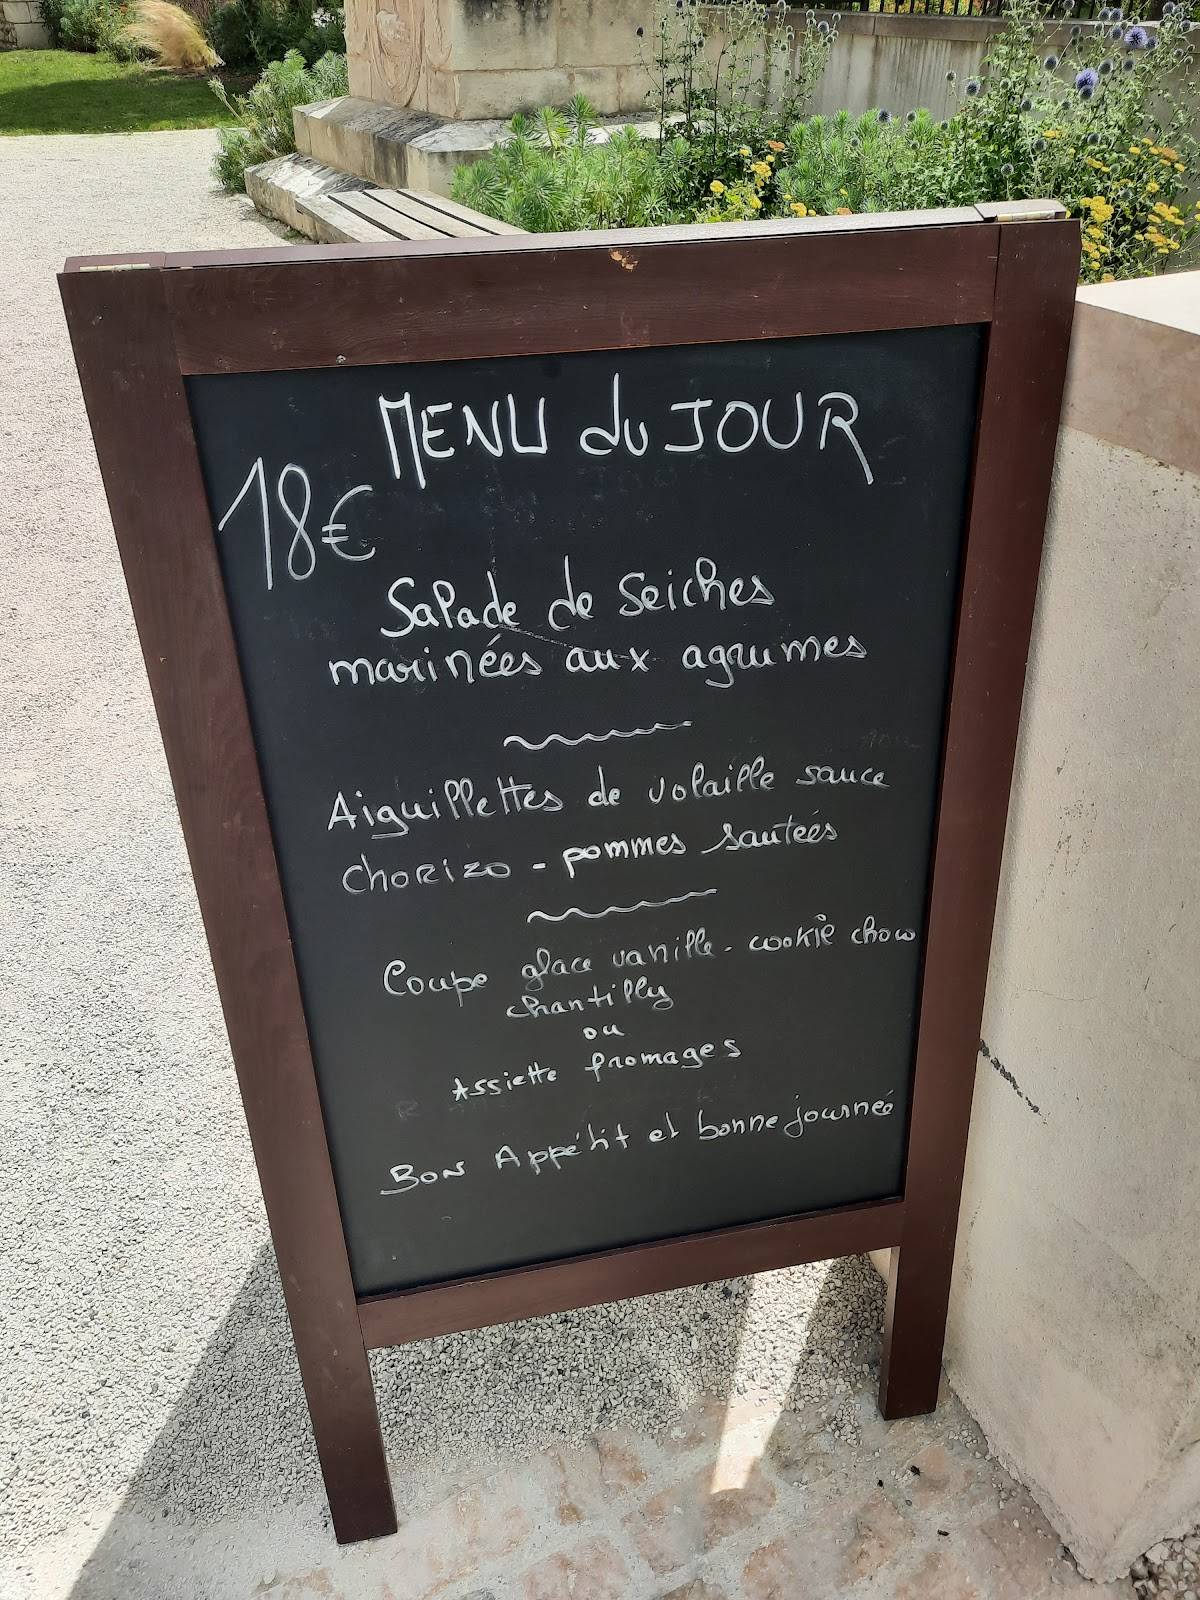 MENU du JOUR
18€
Salade de seiches
marinées aux agrumes
Aiguillettes de volaille sauce
chorizo - pommes sautées
Coupe glace vanille - cookie choco
chantilly
ou
Assiette fromages
Bon Appétit et bonne journée